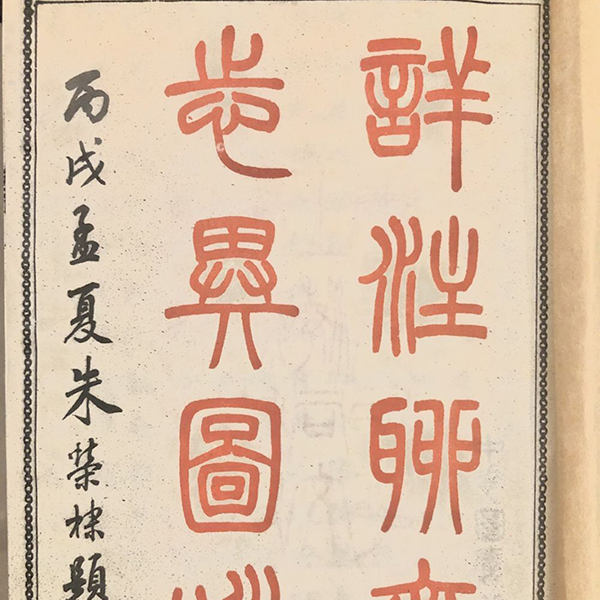 詳注聊齋
志異圖詠
丙戌孟夏朱榮棣題